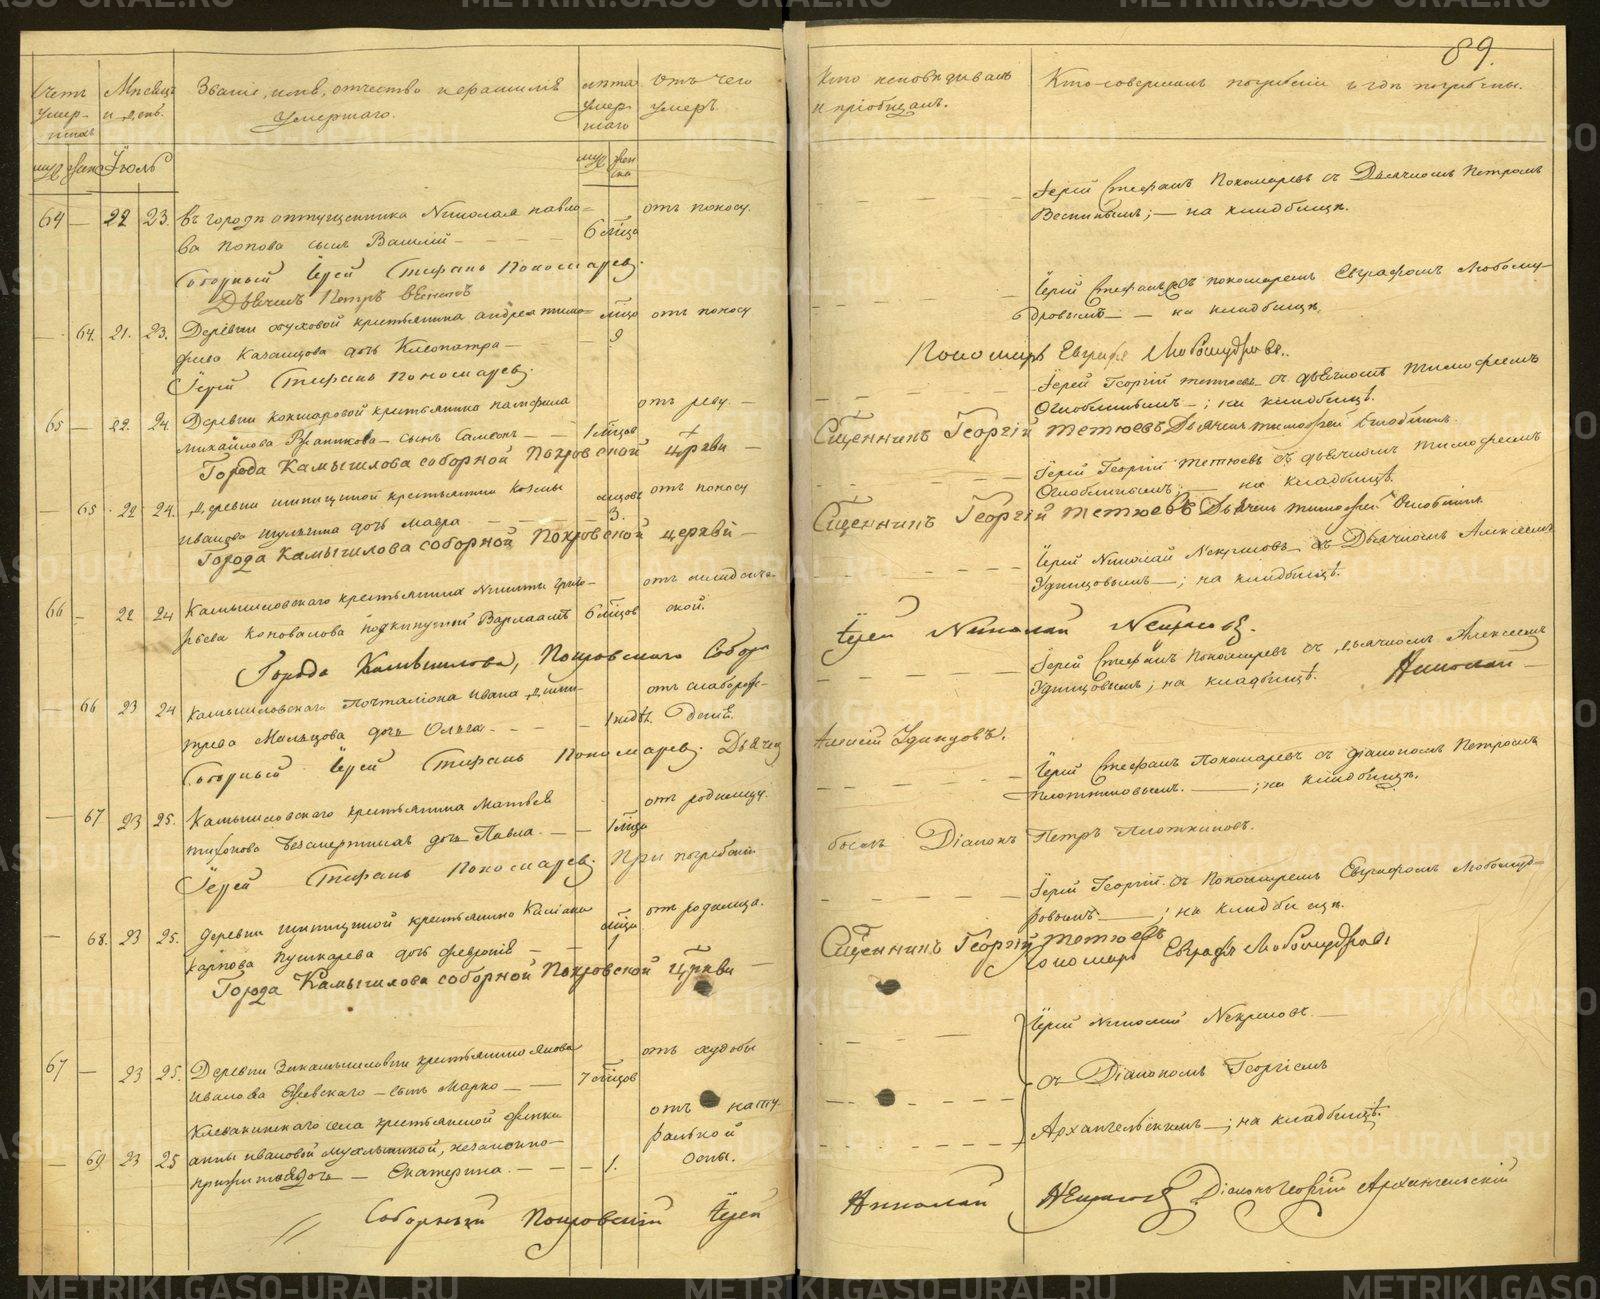 89.
Счетъ умер-шихъ
Мѣсяцъ и день.
Званіе, имя, отчество и фамилія умершаго.
лѣта умер-шаго
отъ чего умеръ.
муж. женс. Іюль
муж. жен-ска
64 — 22 23 въ городѣ отпущенника Николая Павло-
ва Попова сынъ Василій — 6 мѣсяца отъ поносу.
Соборный Іерей Стефанъ Пономаревъ.
Дьячекъ Петръ
— 64. 21. 23. Деревни Обуховой крестьянина Андрея Тимо-
фѣева Казанцова дочь Клеопатра — 9 мѣсяцо отъ поносу
Іерей Стефанъ Пономаревъ.
65 — 22. 24. Деревни Кокшаровой крестьянина Памфила
Михайлова сынъ Самсонъ — 1 мѣсяцовъ отъ реву. —
Города Камышлова соборной Покровской церкви —
— 65 22 24. Деревни Шипициной крестьянина Козмы
Иванова Шульгина дочь Мавра — мѣсяцовъ 3. отъ поносу
Города Камышлова соборной Покровской церкви —
66 — 22 24 Камышловскаго крестьянина Никиты Григо-
рьева Коновалова подкинутый Варлаамъ 6 мѣсяцовъ отъ младенче-
ской.
Города Камышлова, Покровскаго Собора
— 66 23 24 Камышловскаго Почталіона Ивана Дмит-
ріева Мальцова дочь Ольга. — 1 недѣл. отъ слаборож-
денія.
Соборный Іерей Стефанъ Пономаревъ. Дьячекъ
— 67 23 25. Камышловскаго крестьянина Матвѣя
Тихонова Безсмертныхъ дочь Павла. — 1 мѣсяцо отъ родимцу.
Іерей Стефанъ Пономаревъ. При погребеніи
— 68. 23 25. Деревни Шипициной крестьянина
Карпова Пушкарева дочь Февронія — мѣсяцо 1 отъ родимца.
Города Камышлова соборной Покровской церкви —
67 — 23 25. Деревни Закамышловки крестьянина Якова
Иванова сынъ Марко — 7 мѣсяцов отъ худобы
Клевакинскаго села крестьянской
Анны Ивановой незаконно-
прижитая дочь — Екатерина. — 1. отъ нату-
ральной
оспы.
Соборный Покровскій Іерей
Кто исповѣдывалъ и пріобщалъ.
Кто совершалъ погребеніе и гдѣ погребены.
Іерей Стефанъ Пономаревъ съ Дьячкомъ Петромъ
; — на кладбищѣ.
Іерей Стефанъ съ пономаремъ Евграфомъ Любому-
дровымъ — на кладбищѣ.
Пономарь Евграфъ Любомудровъ.
Іерей Георгій Тетюевъ съ дьячкомъ Тимофеемъ
Оглоблинымъ — ; на кладбищѣ.
Священникъ Георгій Тетюевъ Дьячекъ Тимофей Оглоблинъ.
Іерей Георгій Тетюевъ съ дьячкомъ Тимофеемъ
Оглоблинымъ; — на кладбищѣ.
Священникъ Георгій Тетюевъ Дьячекъ Тимофей Оглоблинъ.
Іерей Николай Некрасовъ съ Дьячкомъ Алексеемъ
Удинцовымъ — ; на кладбищѣ.
Іерей Николай Некрасовъ.
Іерей Стефанъ Пономаревъ съ дьячкомъ Алексеемъ
Удинцовымъ; на кладбищѣ. Николай —
Алексій Удинцовъ.
Іерей Стефанъ Пономаревъ съ діакономъ Петромъ
Плотниковымъ. — ; на кладбищѣ.
былъ Діаконъ Петръ Плотниковъ.
Іерей Георгій съ Пономаремъ Евграфомъ Любомуд-
ровымъ — ; на кладбищѣ.
Священникъ Георгій Тетюевъ
Пономарь Евграфъ Любомудровъ
Іерей Николай Некрасовъ —
съ Діакономъ Георгіемъ
Архангельскимъ — ; на кладбищѣ.
Николай Некрасовъ Діаконъ Георгій Архангельскій
METRIKI.GASO-URAL.RU